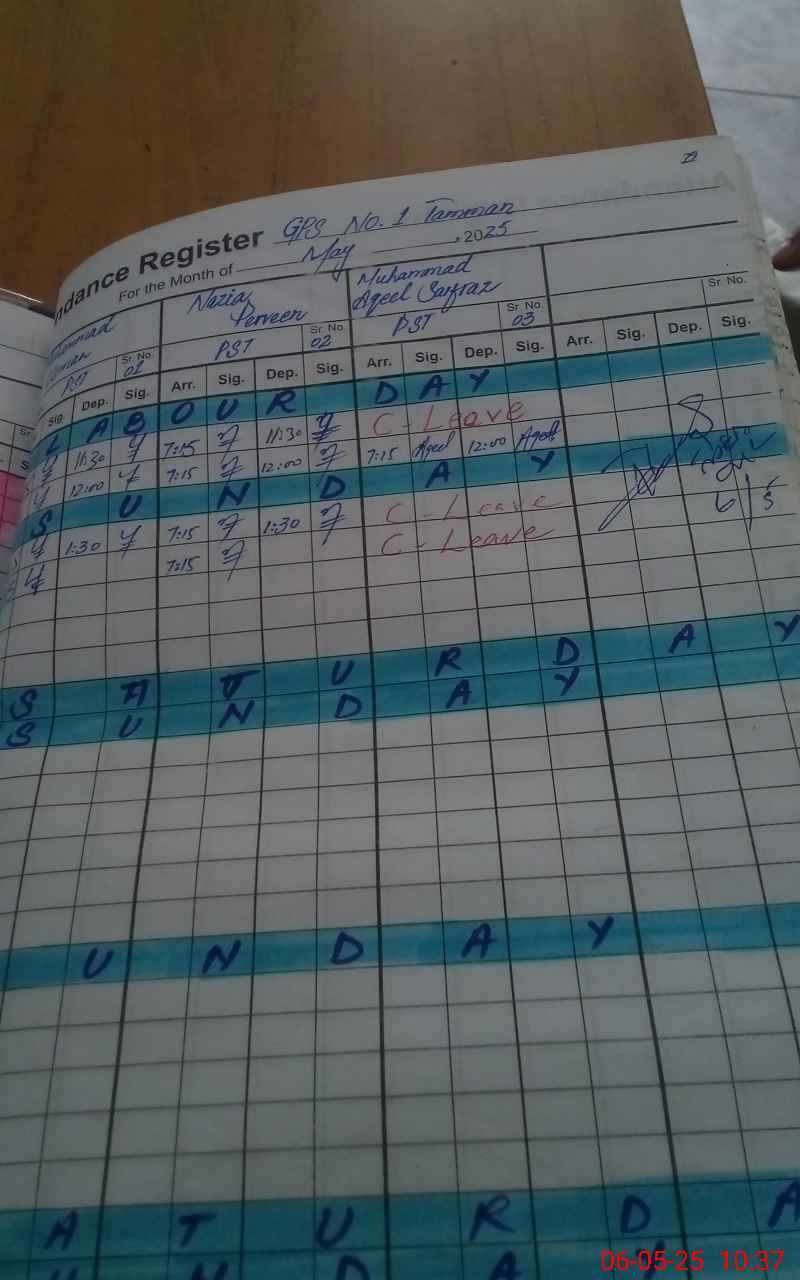 29
ndance Register GPS No. 1 Tamman
For the Month of May, 2025
Nazia Perveen
Muhammad Aqeel Sarfraz
PST Sr. No. 01
PST Sr. No. 02
PST Sr. No. 03
Sr. No.
Sig. Dep. Sig. Arr. Sig. Dep. Sig. Arr. Sig. Dep. Sig. Arr. Sig. Dep. Sig.
L A B O U R D A Y
11:30 7:15 11:30 C-Leave
12:00 7:15 12:00 7:15 Aqeel 12:00 Aqeel
S U N D A Y
1:30 7:15 1:30 C-Leave
7:15 C-Leave
6/5
S A T U R D A Y
S U N D A Y
U N D A Y
A T U R D A
U N D A Y
06-05-25 10.37